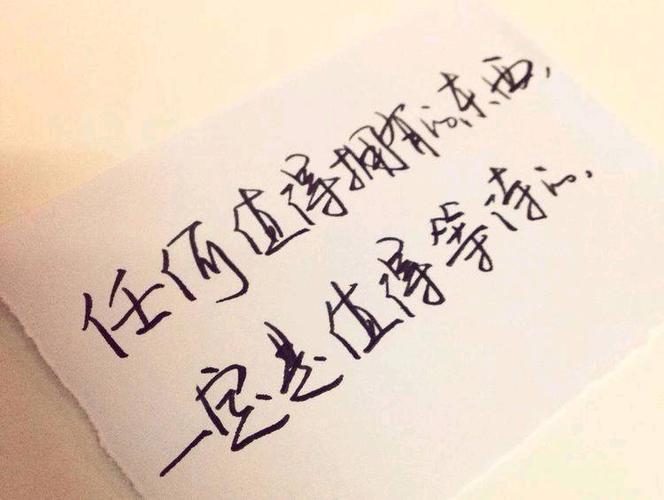 任何值得拥有的东西,
一定是值得等待的.